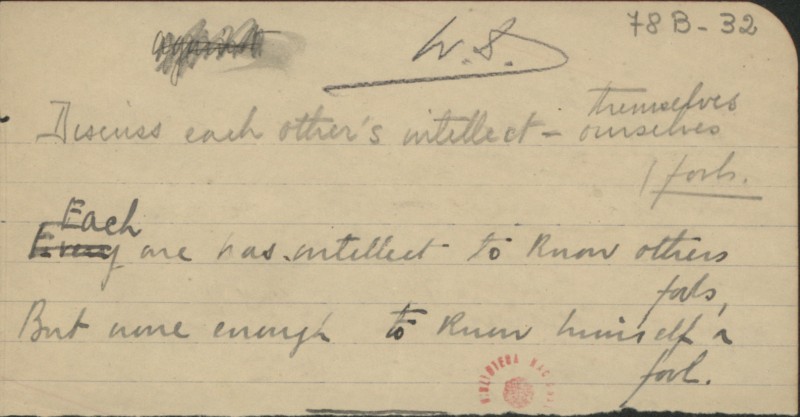 78B-32
against
W.S.
Discuss each other's intellect - themselves
ourselves
fools.
Each
Every one has intellect to know others
fools,
But none enough to know himself a
fool.
BIBLIOTECA NACIONAL